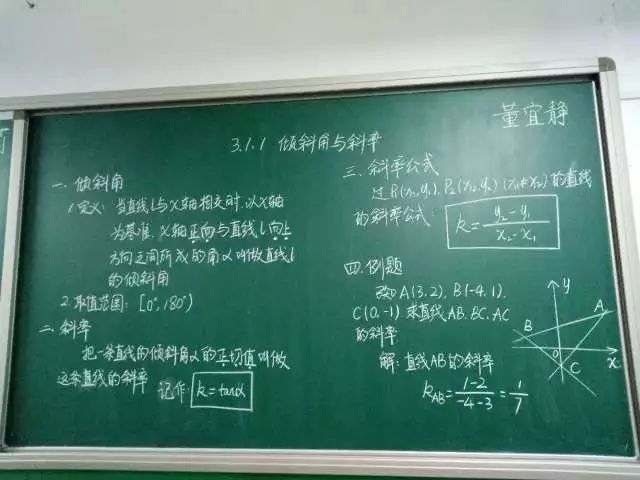 董宜静
3.1.1 倾斜角与斜率
一.倾斜角
1.定义:当直线l与x轴相交时,以x轴
为基准,x轴正向与直线l向上
方向之间所成的角α叫做直线l
的倾斜角
2.取值范围:[0°,180°)
二.斜率
把一条直线的倾斜角α的正切值叫做
这条直线的斜率 记作 k=tanα
三.斜率公式
过P₁(x₁,y₁),P₂(x₂,y₂)(x₁≠x₂)的直线
的斜率公式: k=(y₂-y₁)/(x₂-x₁)
四.例题
已知A(3,2),B(-4,1),
C(0,-1)求直线AB,BC,AC
的斜率
解:直线AB的斜率
k_AB=(1-2)/(-4-3)=1/7
y
A
B
0
x
C